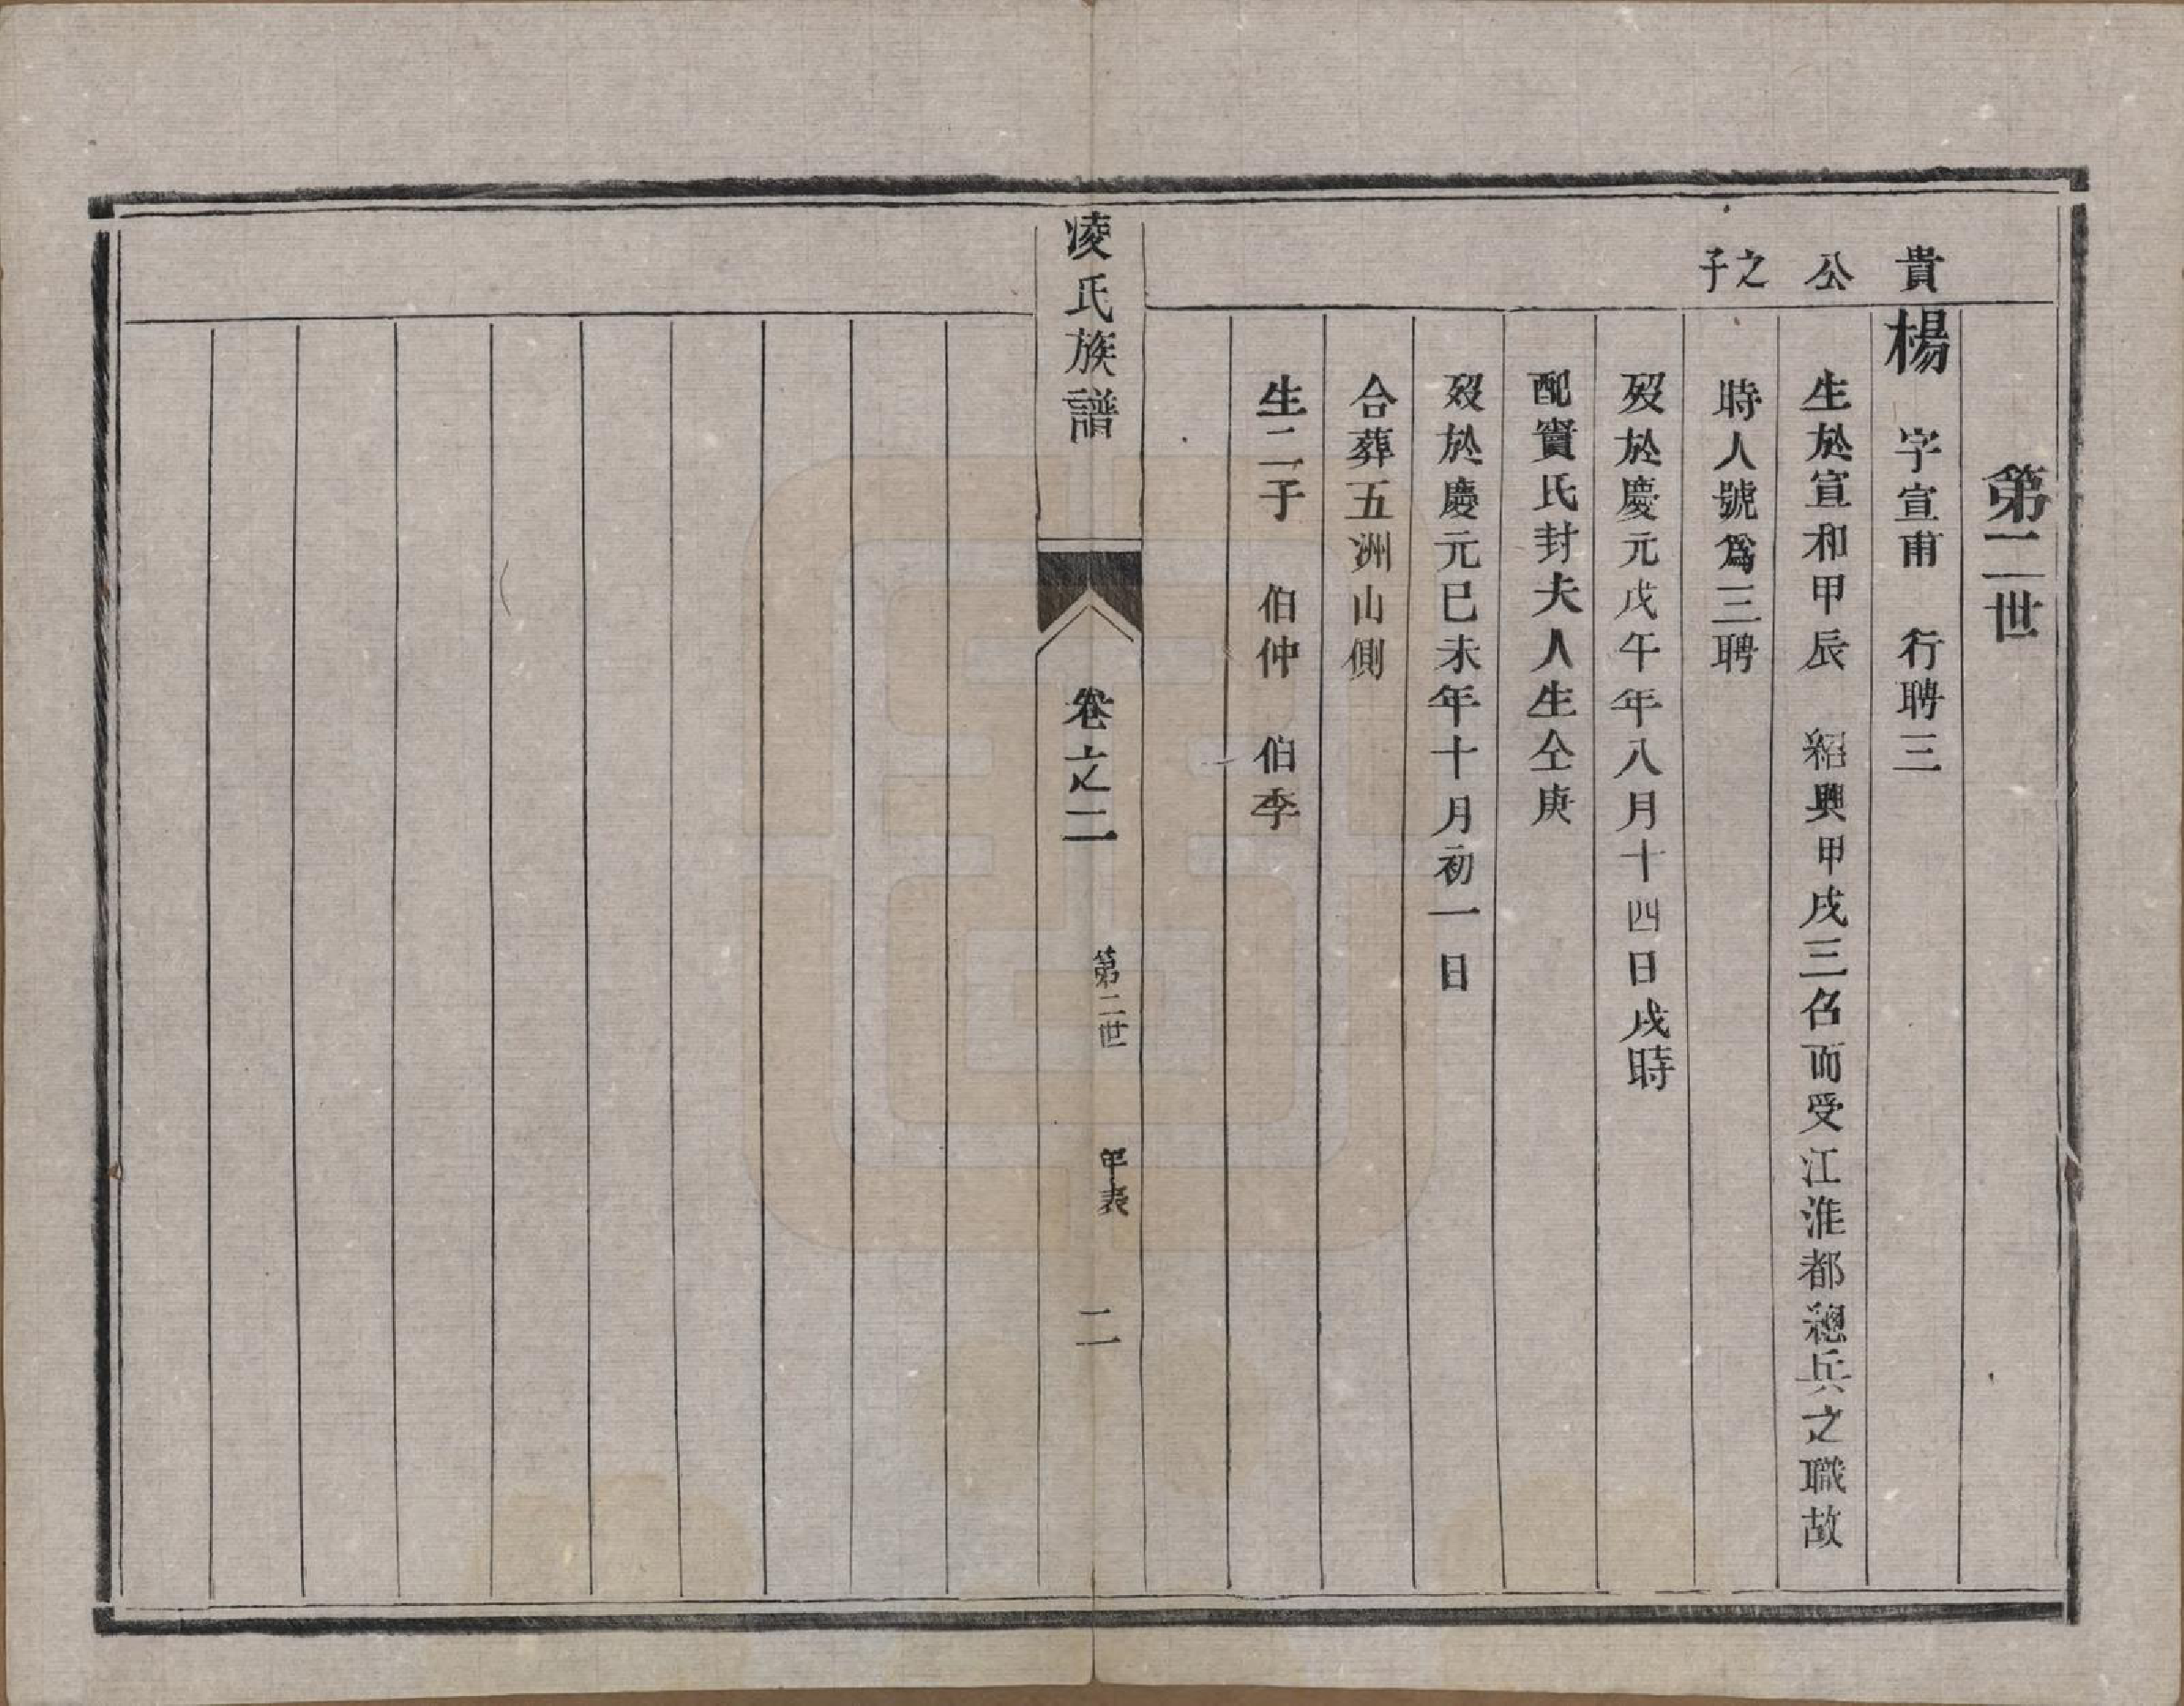 第二世
貴公之子
楊 字宣甫 行聘三
生於宣和甲辰 紹興甲戌三召而受江淮都總兵之職故
時人號爲三聘
歿於慶元戊午年八月十四日戌時
配竇氏封夫人生仝庚
歿於慶元巳未年十月初一日
合葬五洲山側
生二子 伯仲 伯季
凌氏族譜 卷之二 第二世 年表 二